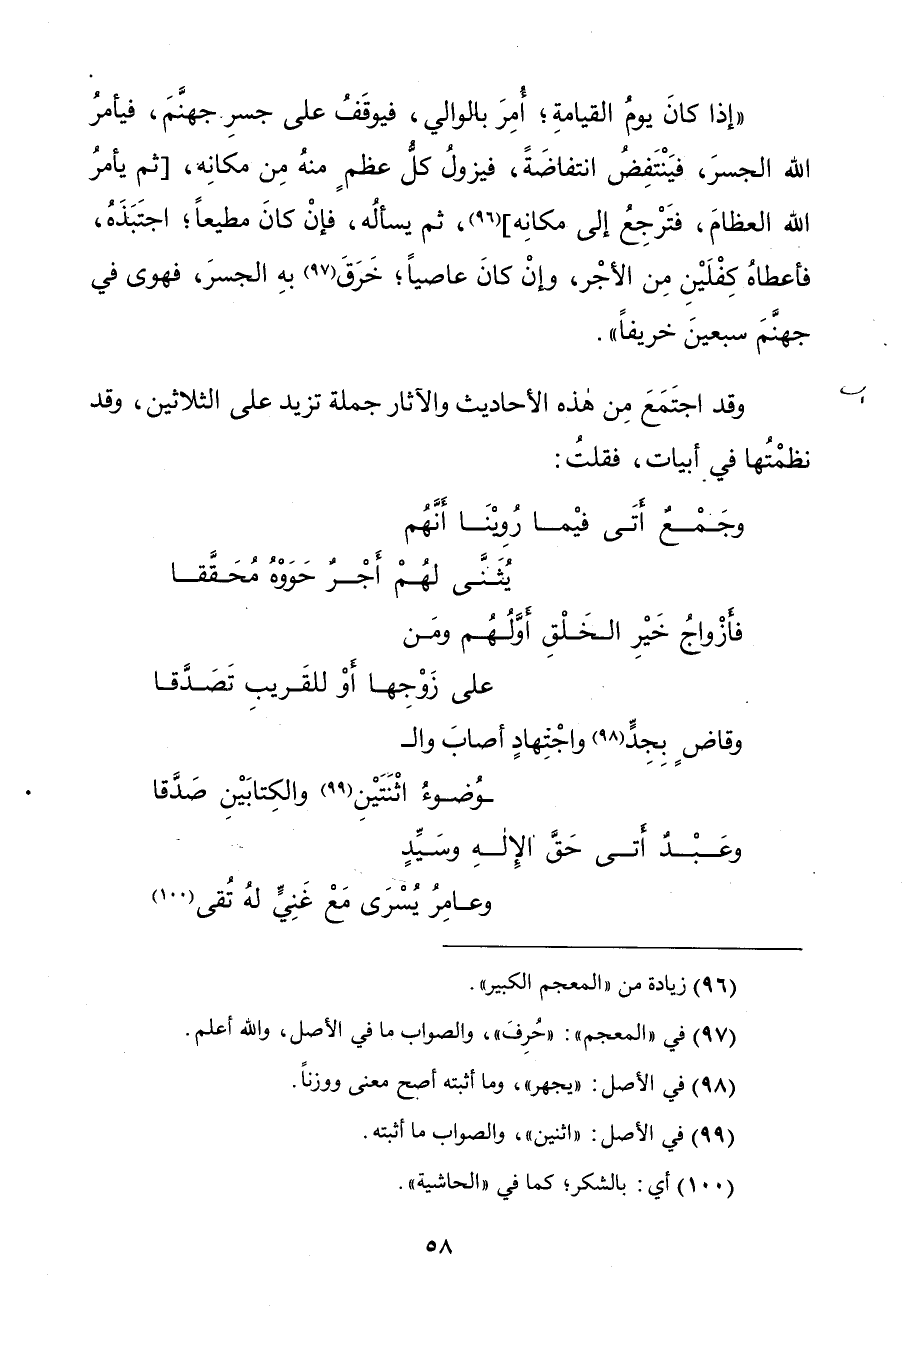 «إذا كانَ يومُ القيامةِ؛ أُمِرَ بالوالي، فيوقَفُ على جسرِ جهنَّمَ، فيأمرُ
الله الجسرَ، فيَنْتَفِضُ انتفاضَةً، فيزولُ كلُّ عظمٍ منهُ مِن مكانِه، [ثم يأمرُ
الله العظامَ، فتَرْجِعُ إلى مكانِه](٩٦)، ثم يسألُه، فإنْ كانَ مطيعاً؛ اجتَبَذَهُ،
فأعطاهُ كِفْلَيْنِ مِن الأجْرِ، وإنْ كانَ عاصياً؛ خَرَقَ(٩٧) بهِ الجسرَ، فهوى في
جهنَّمَ سبعينَ خريفاً».
وقد اجتَمَعَ مِن هٰذه الأحاديث والآثار جملة تزيد على الثلاثين، وقد
نظمْتُها في أبيات، فقلتُ:
وجَـمْـعٌ أَتَـى فيْمـا رُوِيْنَـا أَنَّهُم
يُثَـنَّـى لهُـمْ أَجْـرٌ حَوَوْهُ مُحَـقَّقـا
فأَزْواجُ خَيْرِ الـخَـلْقِ أَوَّلُـهُـم ومَـن
على زَوْجِهـا أَوْ للقَـريبِ تَصَـدَّقـا
وقاضٍ بِجِدٍّ(٩٨) واجْتِهادٍ أصابَ والـ
ـوُضـوءُ اثْنَتَيْنِ(٩٩) والكِتابَيْنِ صَدَّقا
وعَـبْـدٌ أَتـى حَقَّ الإِلٰـهِ وسَـيِّدٍ
وعـامِرُ يُسْرَى مَعْ غَنِيٍّ لهُ تُقى(١٠٠)
(٩٦) زيادة من «المعجم الكبير».
(٩٧) في «المعجم»: «حُرِفَ»، والصواب ما في الأصل، والله أعلم.
(٩٨) في الأصل: «يجهر»، وما أثبته أصح معنى ووزناً.
(٩٩) في الأصل: «اثنين»، والصواب ما أثبته.
(١٠٠) أي: بالشكر؛ كما في «الحاشية».
٥٨